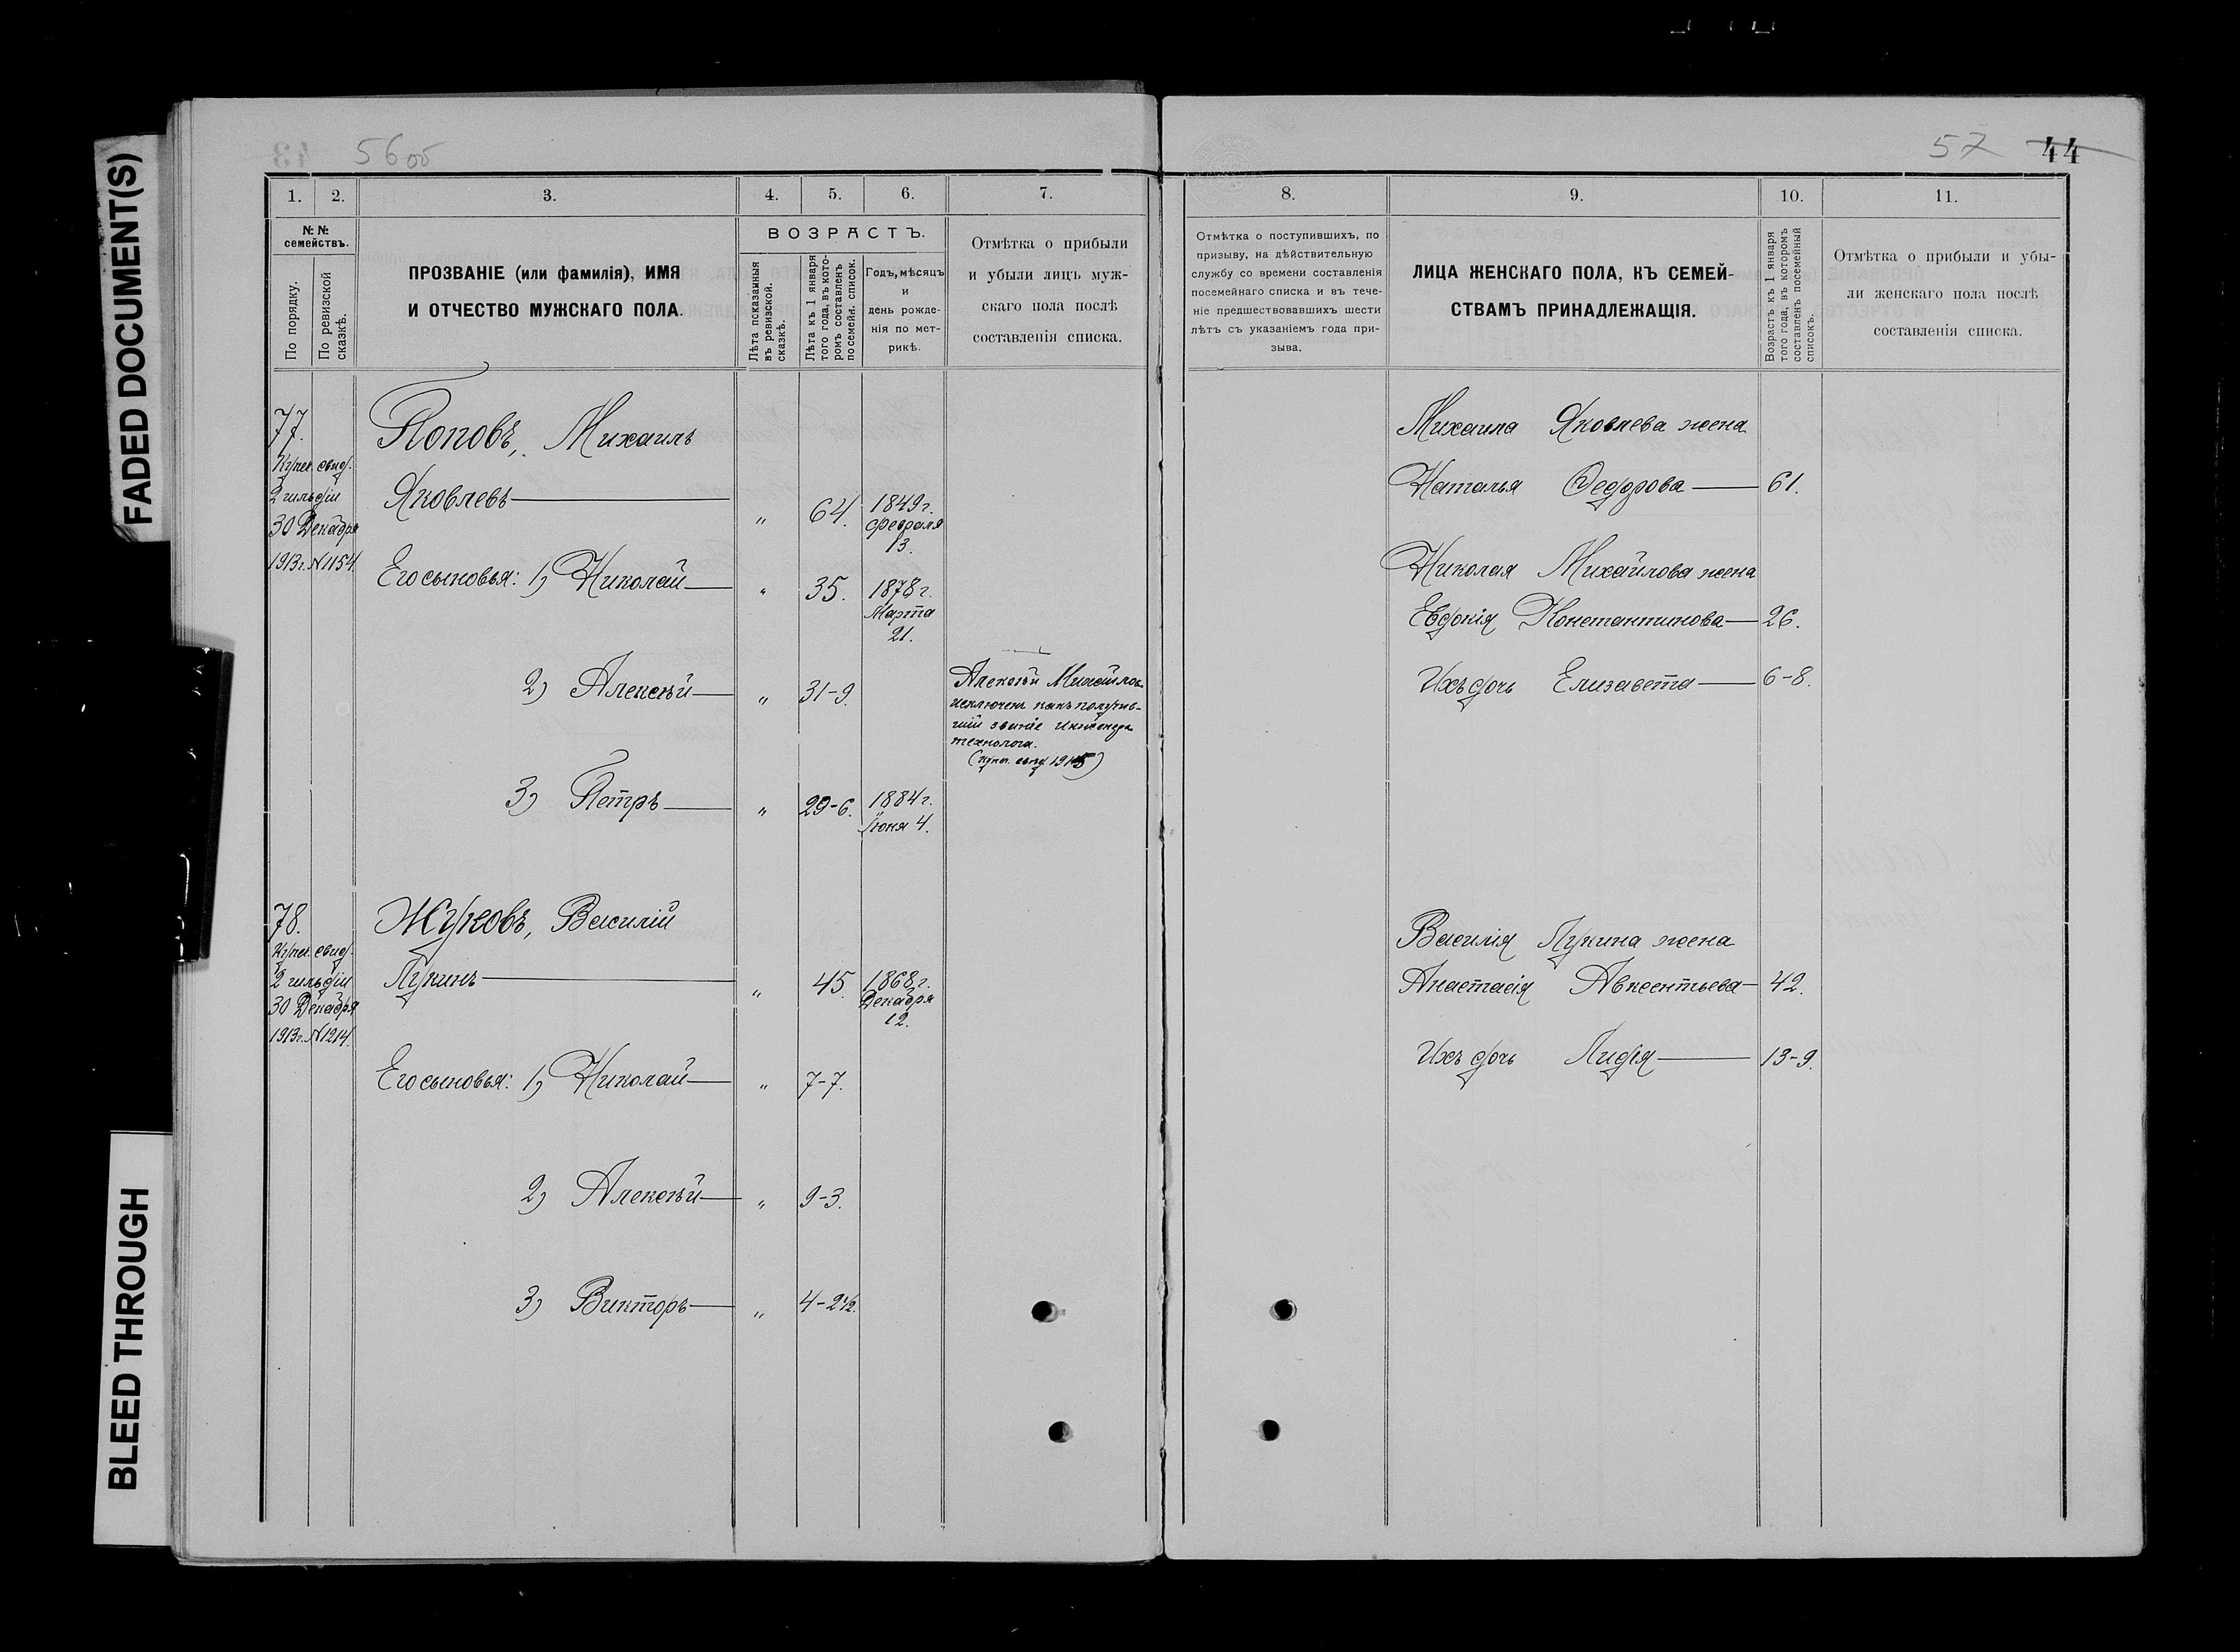 FADED DOCUMENT(S)
BLEED THROUGH
56об
57 44
1. 2. 3. 4. 5. 6. 7.
№ №
семействъ.
По порядку.
По ревизской
сказкѣ.
ПРОЗВАНІЕ (или фамилія), ИМЯ
И ОТЧЕСТВО МУЖСКАГО ПОЛА.
ВОЗРАСТЪ.
Лѣта показанныя
въ ревизской.
сказкѣ.
Лѣта къ 1 января
того года, въ кото-
ромъ составленъ
посемейн. список.
Годъ, мѣсяцъ
и
день рожде-
нія по мет-
рикѣ.
Отмѣтка о прибыли
и убыли лицъ муж-
скаго пола послѣ
составленія списка.
77.
Купеч. свид.
2 гильдіи
30 Декабря
1913г. №1154.
Поповъ, Михаилъ
Яковлевъ „ 64. 1849г.
Февраля
13.
Его сыновья: 1) Николай „ 35. 1878г.
Марта
21.
2) Алексѣй „ 31-9.
Алексѣй Михайлов
исключенъ какъ получив-
шій званіе Инженера
технолога.
(купч. свид 1915)
3) Петръ „ 29-6. 1884г.
Іюня 4.
78.
Купеч. свид.
2 гильдіи
30 Декабря
1913г. №1214.
Жуковъ, Василій
Лукинъ „ 45 1868г.
Декабря
12.
Его сыновья: 1) Николай „ 7-7.
2) Алексѣй „ 9-3.
3) Викторъ „ 4-2½.
8. 9. 10. 11.
Отмѣтка о поступившихъ, по
призыву, на дѣйствительную
службу со времени составленія
посемейнаго списка и въ тече-
ніе предшествовавшихъ шести
лѣтъ съ указаніемъ года при-
зыва.
ЛИЦА ЖЕНСКАГО ПОЛА, КЪ СЕМЕЙ-
СТВАМЪ ПРИНАДЛЕЖАЩІЯ.
Возрастъ къ 1 января
того года, въ которомъ
составленъ посемейный
списокъ.
Отмѣтка о прибыли и убы-
ли женскаго пола послѣ
составленія списка.
Михаила Яковлева жена
Наталья Федорова 61.
Николая Михайлова жена
Евдокія Константинова 26.
Ихъ дочь Елизавета 6-8.
Василія Лукина жена
Анастасія Авксентьева 42.
Ихъ дочь Лидія 13-9.